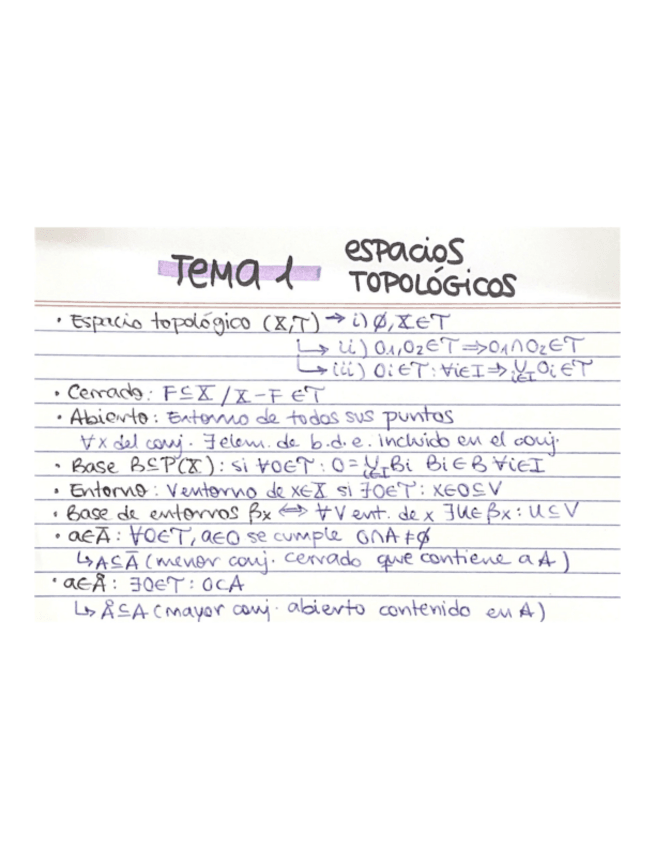 TEMA 1 ESPACIOS TOPOLÓGICOS
· Espacio topológico (X,T) → i) ∅, X ∈ T
↳ ii) O1, O2 ∈ T ⇒ O1 ∩ O2 ∈ T
↳ iii) Oi ∈ T : ∀i ∈ I ⇒ ∪i∈I Oi ∈ T
· Cerrado: F ⊆ X / X - F ∈ T
· Abierto: Entorno de todos sus puntos
∀x del conj. ∃ elem. de b.d.e. incluido en el conj.
· Base B ⊆ P(X): si ∀O ∈ T : O = ∪i∈I Bi Bi ∈ B ∀i ∈ I
· Entorno: V entorno de x ∈ X si ∃O ∈ T : x ∈ O ⊆ V
· Base de entornos βx ⟺ ∀V ent. de x ∃U ∈ βx : U ⊆ V
· a ∈ Ā : ∀O ∈ T, a ∈ O se cumple O ∩ A ≠ ∅
↳ A ⊆ Ā (menor conj. cerrado que contiene a A)
· a ∈ Å : ∃O ∈ T : O ⊂ A
↳ Å ⊆ A (mayor conj. abierto contenido en A)